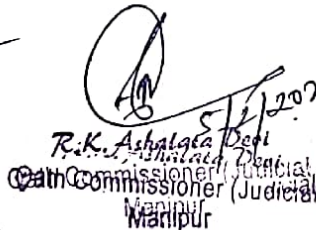 5/2/202
R.K. Ashalata Devi
Oath Commissioner (Judicial)
Manipur